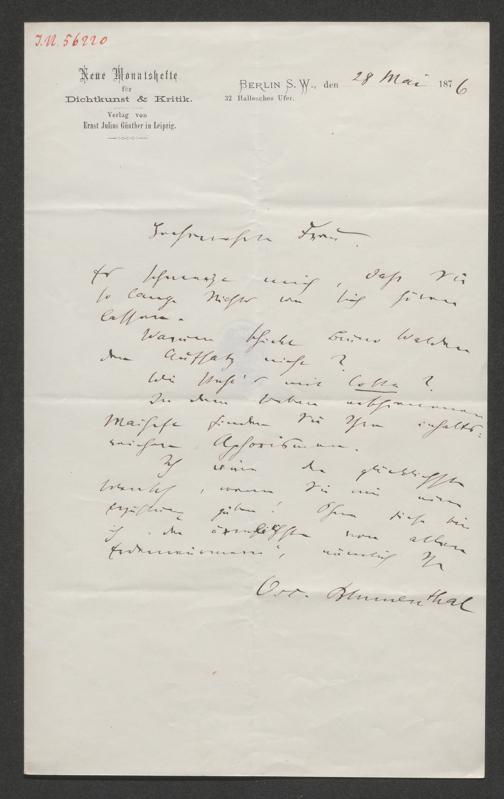 J.N. 56220
Neue Monatshefte
für
Dichtkunst & Kritik.
Verlag von
Ernst Julius Günther in Leipzig.
BERLIN S. W., den 28 Mai 1876
32 Hallesches Ufer.
Hochverehrte Frau.
Es schmerzt mich, daß Sie
so lange Nichts von sich hören
lassen.
Warum schickt Bruno Walden
den Aufsatz nicht?
Wie steht's mit Cotta?
In dem soeben erschienenen
Maihefte finden Sie Ihre inhalts-
reichen Aphorismen.
Ich wäre der glücklichste
Mensch, wenn Sie mir eine
Erzählung geben! Ohne diese bin
ich der ärmlichste von allen
Erdenwürmern, nämlich Ihr
Osc. Blumenthal